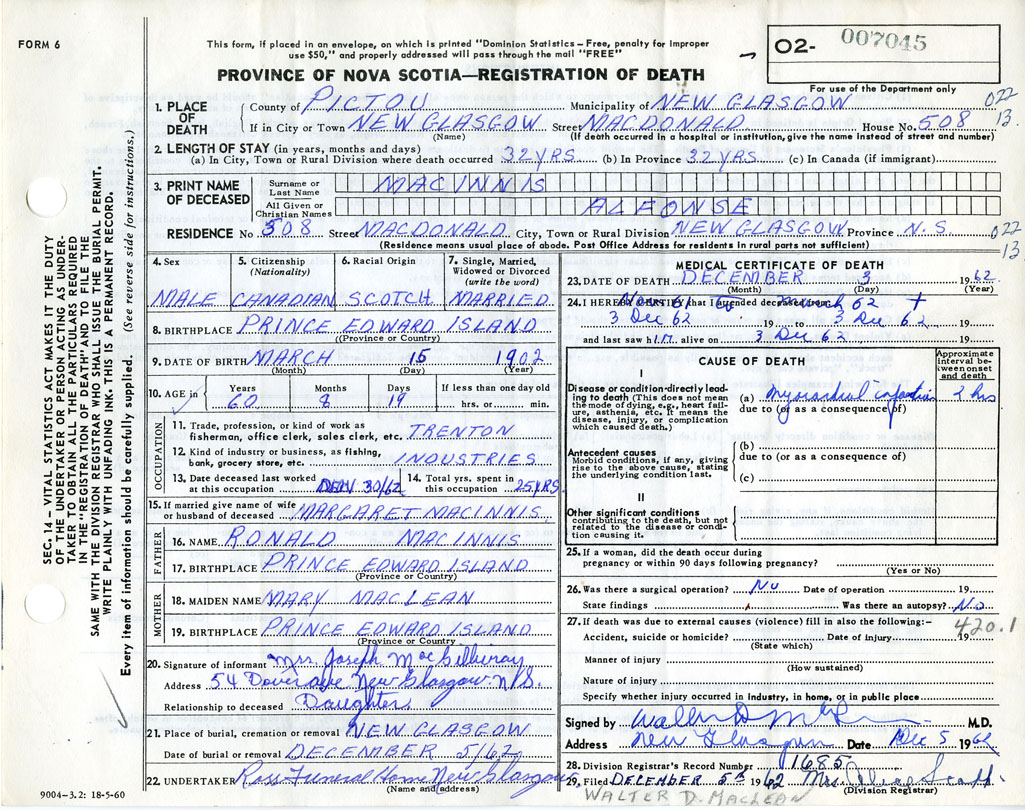 FORM 6
This form, if placed in an envelope, on which is printed "Dominion Statistics – Free, penalty for improper
use $50," and properly addressed will pass through the mail "FREE"
O2- 007045
PROVINCE OF NOVA SCOTIA—REGISTRATION OF DEATH
For use of the Department only
1. PLACE OF DEATH
County of PICTOU Municipality of NEW GLASGOW 022
If in City or Town NEW GLASGOW Street MACDONALD House No. 508 13.
(Name) (If death occurred in a hospital or institution, give the name instead of street and number)
2. LENGTH OF STAY (in years, months and days)
(a) In City, Town or Rural Division where death occurred 32 YRS (b) In Province 32 YRS. (c) In Canada (if immigrant)
3. PRINT NAME OF DECEASED
Surname or Last Name MACINNIS
All Given or Christian Names ALFONSE
RESIDENCE No. 508 Street MACDONALD City, Town or Rural Division NEW GLASGOW Province N.S. 022
13
(Residence means usual place of abode. Post Office Address for residents in rural parts not sufficient)
4. Sex MALE
5. Citizenship (Nationality) CANADIAN
6. Racial Origin SCOTCH
7. Single, Married, Widowed or Divorced (write the word) MARRIED
8. BIRTHPLACE PRINCE EDWARD ISLAND
(Province or Country)
9. DATE OF BIRTH MARCH 15 1902
(Month) (Day) (Year)
10. AGE in Years 60 Months 8 Days 19 If less than one day old hrs. or min.
OCCUPATION
11. Trade, profession, or kind of work as
fisherman, office clerk, sales clerk, etc. TRENTON
12. Kind of industry or business, as fishing,
bank, grocery store, etc. INDUSTRIES
13. Date deceased last worked
at this occupation 30/62
14. Total yrs. spent in
this occupation 25 YRS
15. If married give name of wife
or husband of deceased MARGARET MACINNIS
FATHER
16. NAME RONALD MACINNIS
17. BIRTHPLACE PRINCE EDWARD ISLAND
(Province or Country)
MOTHER
18. MAIDEN NAME MARY MACLEAN
19. BIRTHPLACE PRINCE EDWARD ISLAND
(Province or Country)
20. Signature of informant Mrs. Joseph MacGillivray
Address 54 Dover ave New Glasgow N.S.
Relationship to deceased Daughter
21. Place of burial, cremation or removal NEW GLASGOW
Date of burial or removal DECEMBER 5/62
22. UNDERTAKER Ross Funeral Home New Glasgow
(Name and address)
9004-3.2: 18-5-60
MEDICAL CERTIFICATE OF DEATH
23. DATE OF DEATH DECEMBER 3 1962
(Month) (Day) (Year)
24. I HEREBY CERTIFY that I attended deceased from 62 +
3 Dec 62 19 to 3 Dec 62 19
and last saw h I.M. alive on 3 Dec 62 19
CAUSE OF DEATH
Approximate interval between onset and death
I
Disease or condition-directly leading
to death (This does not mean
the mode of dying, e.g., heart failure,
asthenia, etc. It means the
disease, injury, or complication
which caused death.)
(a) Myocardial infarction 2 hrs
due to (or as a consequence of)
Antecedent causes
Morbid conditions, if any, giving
rise to the above cause, stating
the underlying condition last.
(b)
due to (or as a consequence of)
(c)
II
Other significant conditions
contributing to the death, but not
related to the disease or condition
causing it.
25. If a woman, did the death occur during
pregnancy or within 90 days following pregnancy?
(Yes or No)
26. Was there a surgical operation? No Date of operation 19
State findings Was there an autopsy? No
27. If death was due to external causes (violence) fill in also the following:– 420.1
Accident, suicide or homicide? Date of injury 19
(State which)
Manner of injury
(How sustained)
Nature of injury
Specify whether injury occurred in industry, in home, or in public place
Signed by Walter D. M.D.
Address New Glasgow Date Dec 5 1962
28. Division Registrar's Record Number 1685
29. Filed DECEMBER 5th 1962 Mrs.
(Division Registrar)
WALTER D. MACLEAN
SEC. 14 – VITAL STATISTICS ACT MAKES IT THE DUTY
OF THE UNDERTAKER OR PERSON ACTING AS UNDER-
TAKER TO OBTAIN ALL THE PARTICULARS REQUIRED
IN THE "REGISTRATION OF DEATH" AND TO FILE THE
SAME WITH THE DIVISION REGISTRAR WHO SHALL ISSUE THE BURIAL PERMIT.
WRITE PLAINLY WITH UNFADING INK-THIS IS A PERMANENT RECORD.
Every item of information should be carefully supplied. (See reverse side for instructions.)